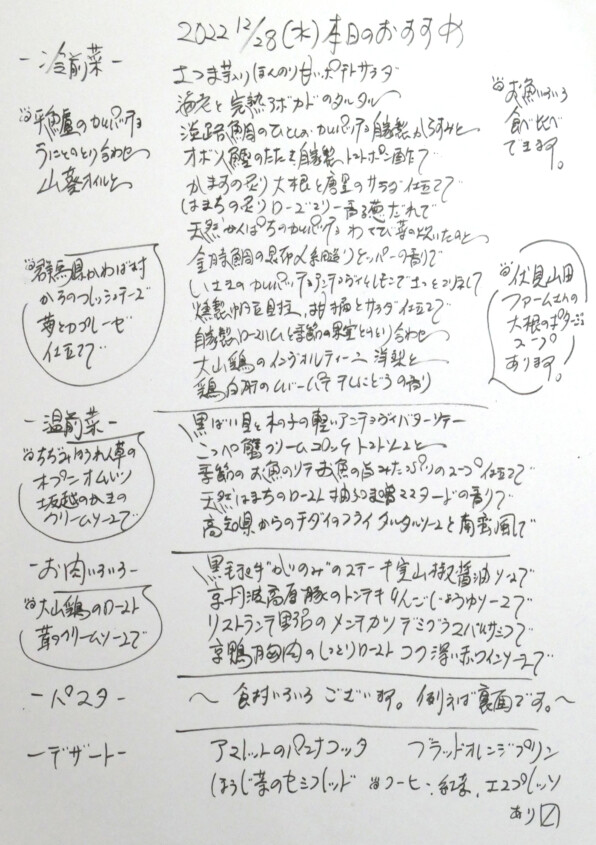 2022 12/28(水)本日のおすすめ
-冷前菜-
さつま芋入りほんのり甘いポテトサラダ
海老と完熟アボカドのタルタル
淡路鯛のひとしお カルパッチョ 自家製からすみと
オボソ鰹のたたき 自家製トマトポン酢で
かますの炙り 大根と唐墨のサラダ仕立てで
はまちの炙り ローズマリー香る葱だれで
天然かんぱちのカルパッチョ わさび菜の
金時鯛の昆布〆 ペッパーの香りで
いさきのカルパッチョ アンチョヴィ
燻製帆立貝柱、柑橘とサラダ仕立てで
自家製ロースハムと季節の果実ととり合わせ
大山鶏のインヴォルティーニ 洋梨と
鶏白肝のムース
平鱸のカルパッチョ
うにとのとり合わせ
山葵オイルと
お魚いろいろ
食べ比べ
できます。
群馬県かわば村
からのフレッシュチーズ
苺とカプレーゼ
仕立てで
伏見山田
ファームさんの
大根のポタージュ
スープ
あります。
-温前菜-
黒ばい貝と木の子の軽いアンチョヴィバターソテー
こっペ蟹クリームコロッケ トマトソースと
季節のお魚のソテー お魚の旨みたっぷりのスープ仕立てで
天然はまちのロースト 柚子こしょうマスタードの香りで
高知県からのチダイのフライ タルタルソースと南蛮風で
ちぢみほうれん草の
オープンオムレツ
坂越のかきの
クリームソースで
-お肉いろいろ-
黒毛和牛“かいのみ”のステーキ 実山椒醤油ソースで
京丹波高原豚のトンテキ りんごしょうゆソースで
リストランテ野呂のメンチカツ デミグラスバルサミコで
京鴨胸肉のしっとりロースト コク深い赤ワインソースで
大山鶏のロースト
茸のクリームソースで
-パスタ-
～ 食材いろいろ ございます。例えば裏面です。～
-デザート-
アマレットのパンナコッタ ブラッドオレンジプリン
ほうじ茶のセミフレッド ※コーヒー、紅茶、エスプレッソ
あり〼